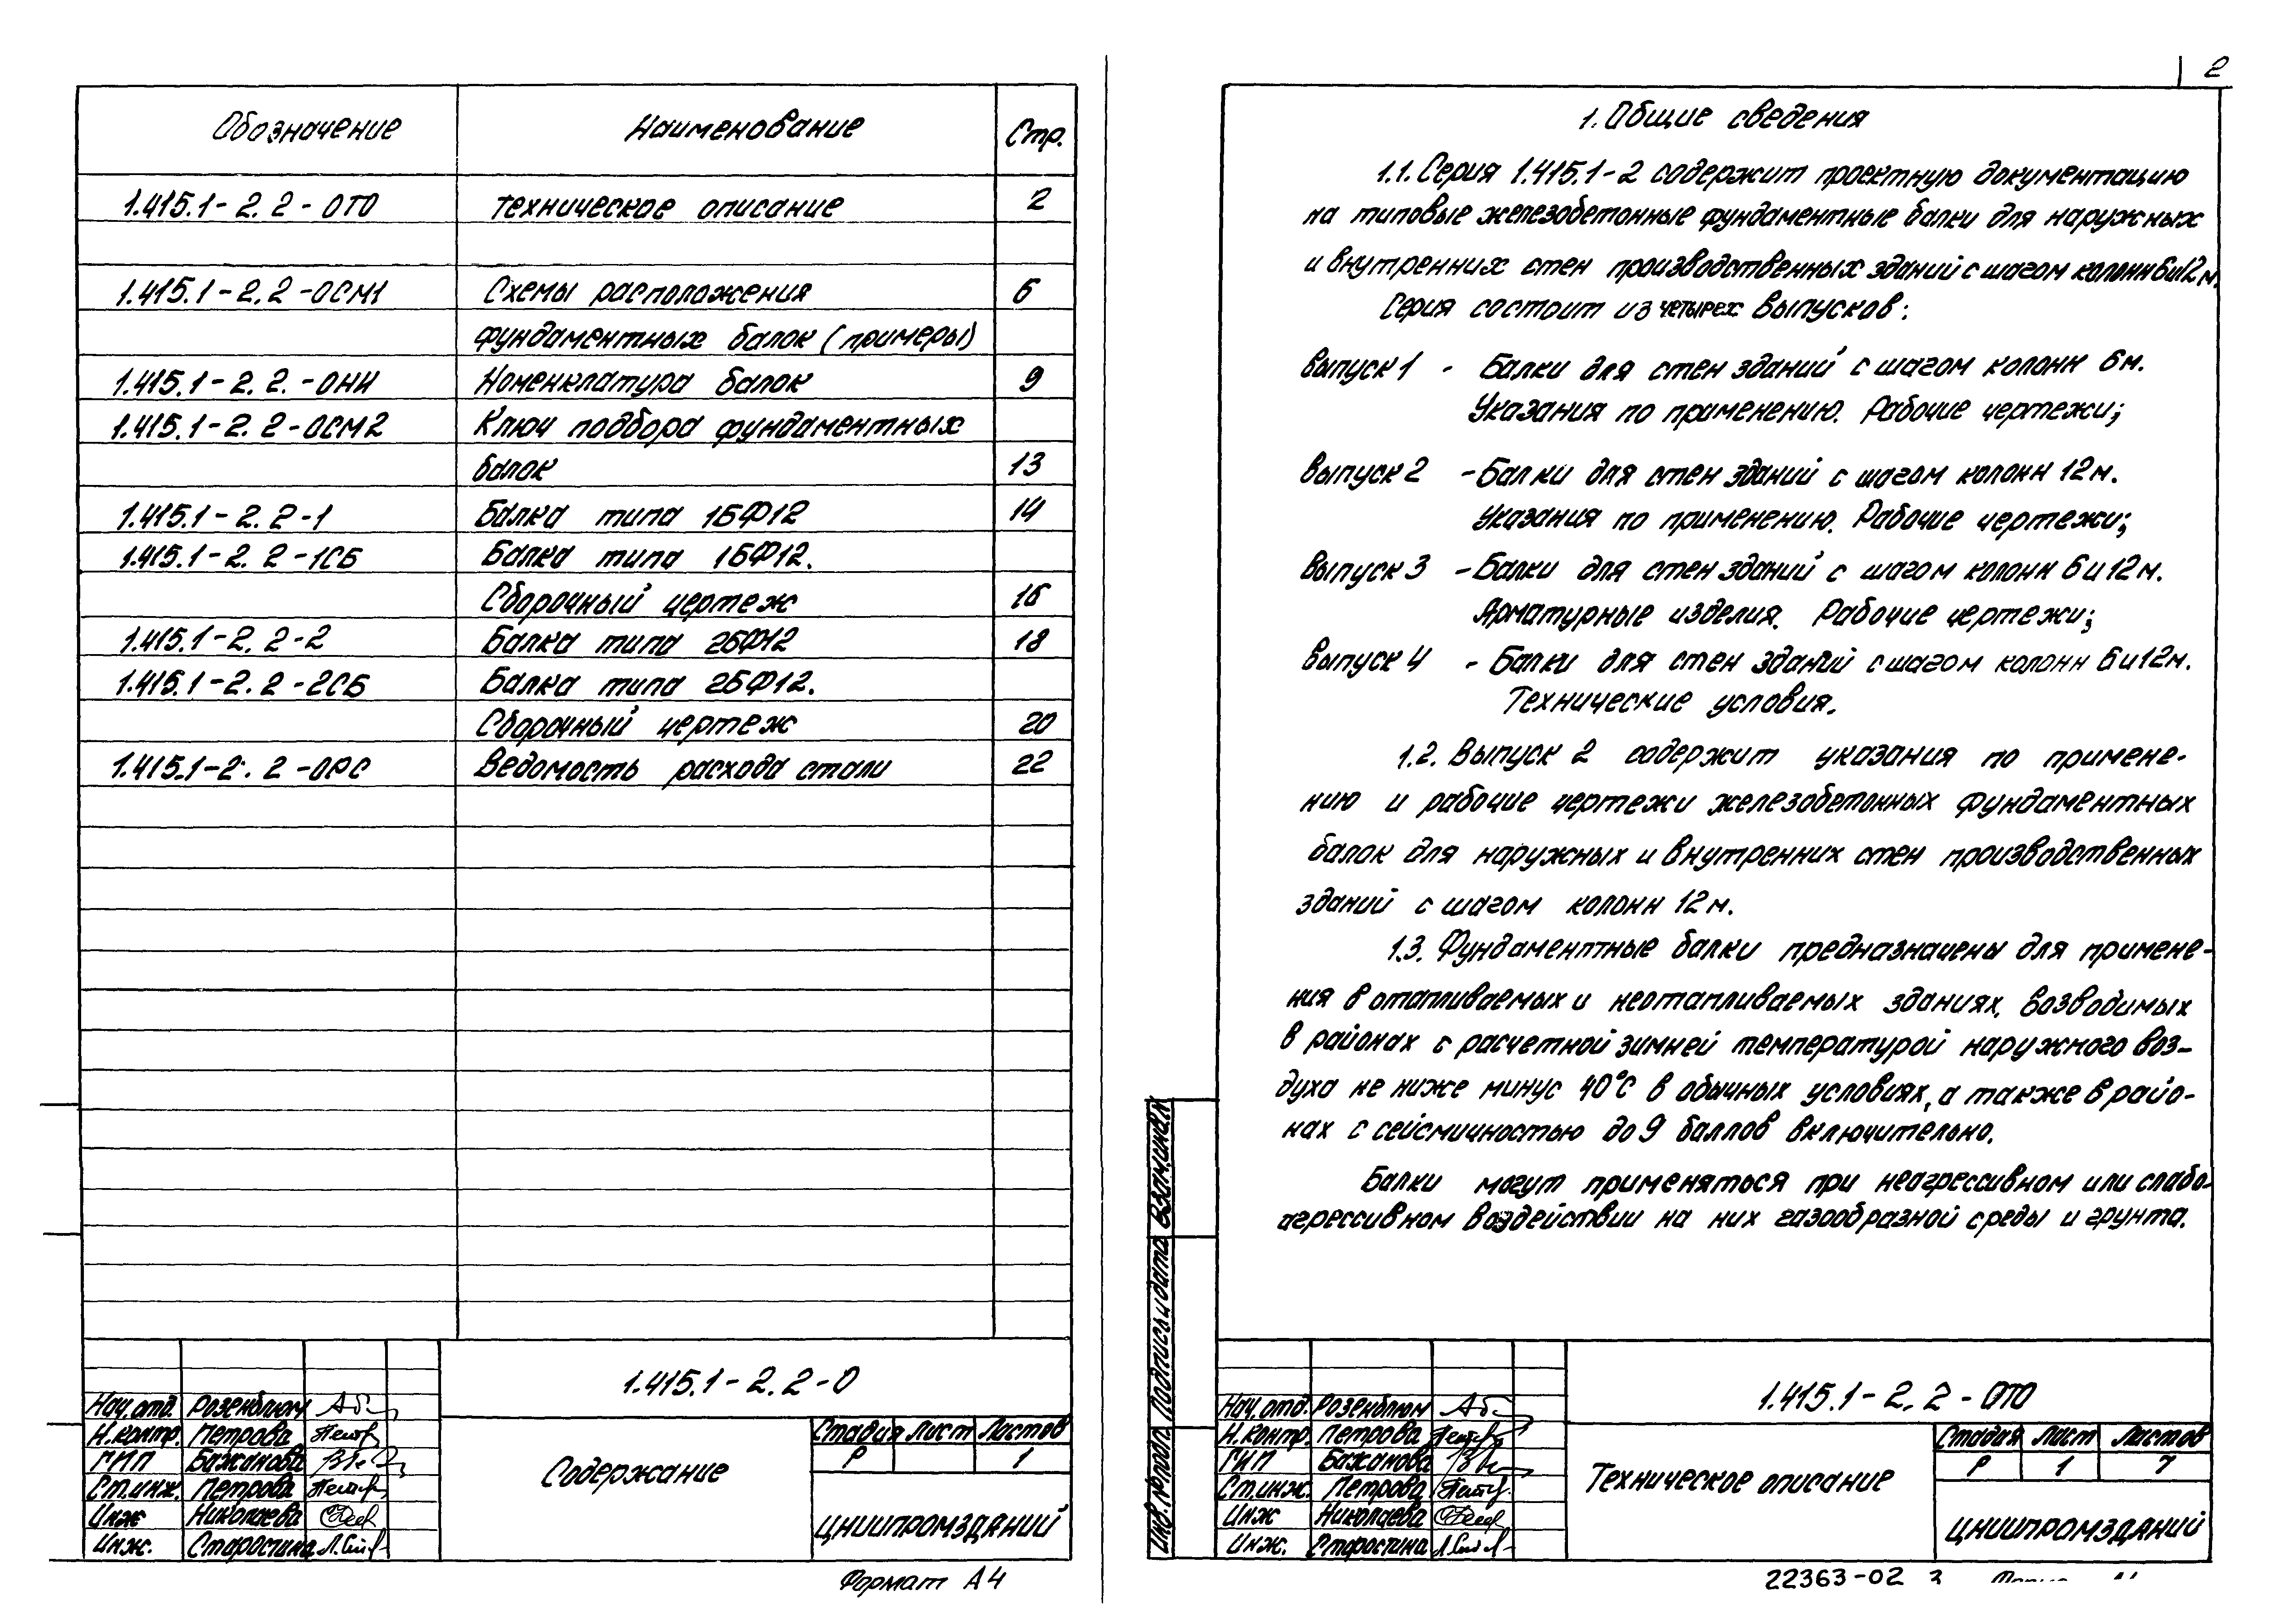 Обозначение Наименование Стр.
1.415.1-2.2-ОТО техническое описание 2
1.415.1-2.2-ОСМ1 Схемы расположения 6
фундаментных балок (примеры)
1.415.1-2.2.-ОНИ Номенклатура балок 9
1.415.1-2.2-ОСМ2 Ключ подбора фундаментных
балок 13
1.415.1-2.2-1 Балка типа 1БФ12 14
1.415.1-2.2-1СБ Балка типа 1БФ12.
Сборочный чертеж 16
1.415.1-2.2-2 Балка типа 2БФ12 18
1.415.1-2.2-2СБ Балка типа 2БФ12.
Сборочный чертеж 20
1.415.1-2.2-ОРС Ведомость расхода стали 22
1.415.1-2.2-0
Нач.отд. Розенблюм
Н.контр. Петрова
ГИП Бажанова
Ст.инж. Петрова
Инж Николаева
Инж. Старостина
Содержание
Стадия Лист Листов
Р 1
ЦНИИПРОМЗДАНИЙ
Формат А4
2
1. Общие сведения
1.1. Серия 1.415.1-2 содержит проектную документацию
на типовые железобетонные фундаментные балки для наружных
и внутренних стен производственных зданий с шагом колонн 6 и 12 м.
Серия состоит из четырех выпусков:
Выпуск 1 - Балки для стен зданий с шагом колонн 6м.
Указания по применению. Рабочие чертежи;
Выпуск 2 - Балки для стен зданий с шагом колонн 12м.
Указания по применению. Рабочие чертежи;
Выпуск 3 - Балки для стен зданий с шагом колонн 6 и 12м.
Арматурные изделия. Рабочие чертежи;
Выпуск 4 - Балки для стен зданий с шагом колонн 6 и 12м.
Технические условия.
1.2. Выпуск 2 содержит указания по примене-
нию и рабочие чертежи железобетонных фундаментных
балок для наружных и внутренних стен производственных
зданий с шагом колонн 12м.
1.3. Фундаментные балки предназначены для примене-
ния в отапливаемых и неотапливаемых зданиях, возводимых
в районах с расчетной зимней температурой наружного воз-
духа не ниже минус 40°С в обычных условиях, а также в райо-
нах с сейсмичностью до 9 баллов включительно.
Балки могут применяться при неагрессивном или слабо-
агрессивном воздействии на них газообразной среды и грунта.
Инв.№подл. Подпись и дата Взам.инв.№
1.415.1-2.2-ОТО
Нач.отд. Розенблюм
Н.контр. Петрова
ГИП Бажанова
Ст.инж. Петрова
Инж Николаева
Инж. Старостина
Техническое описание
Стадия Лист Листов
Р 1 7
ЦНИИПРОМЗДАНИЙ
22363-02 3